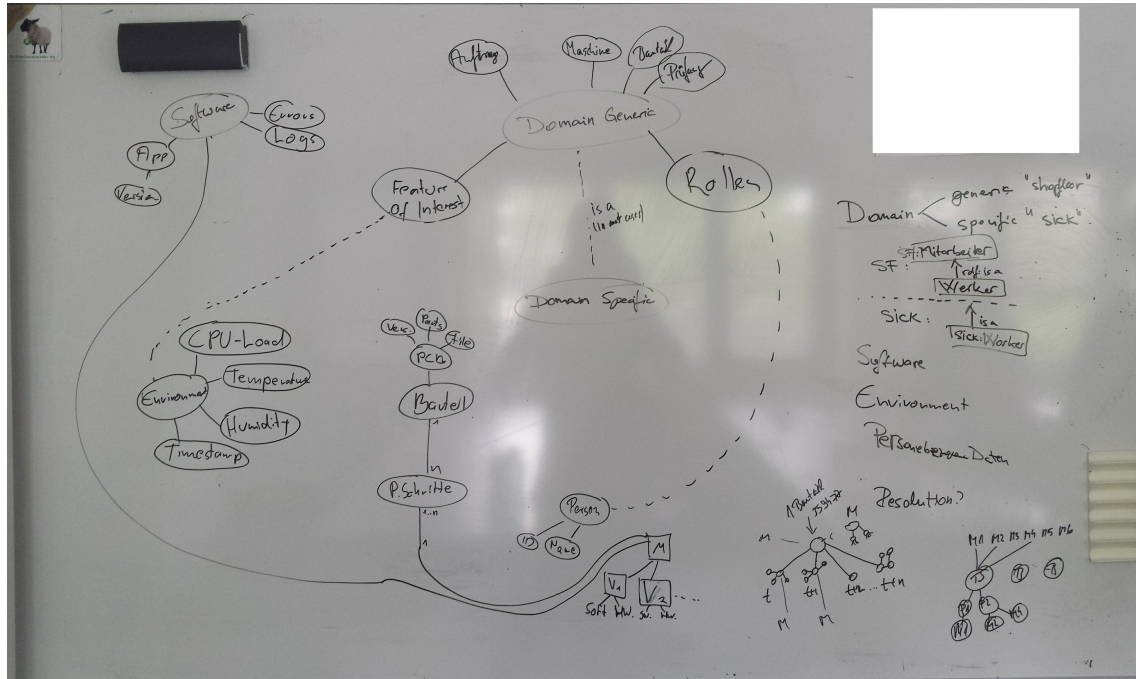 Auftrag
Maschine
Bauteil
Prüfung
Software
Errors
Logs
App
Version
Domain Generic
Feature
Of Interest
Rollen
is a
Domain Specific
CPU-Load
Environment
Temperature
Humidity
Timestamp
Vers.
Pads
File
PCB
Bauteil
1
n
P.Schritte
1..n
1
Person
ID
Name
M
V1
V2
Soft HW.
SW. HW.
Domain
generic "shopfloor"
specific "sick"
SF:
SF:Mitarbeiter
rdf:is a
Worker
Sick:
is a
Sick:Worker
Software
Environment
Personenbezogene Daten
Resolution?
1 Bauteil
M
M
t
t+1
t+2 ... t+n
M
M
M1 M2 M3 M4 M5 M6
P2
M2